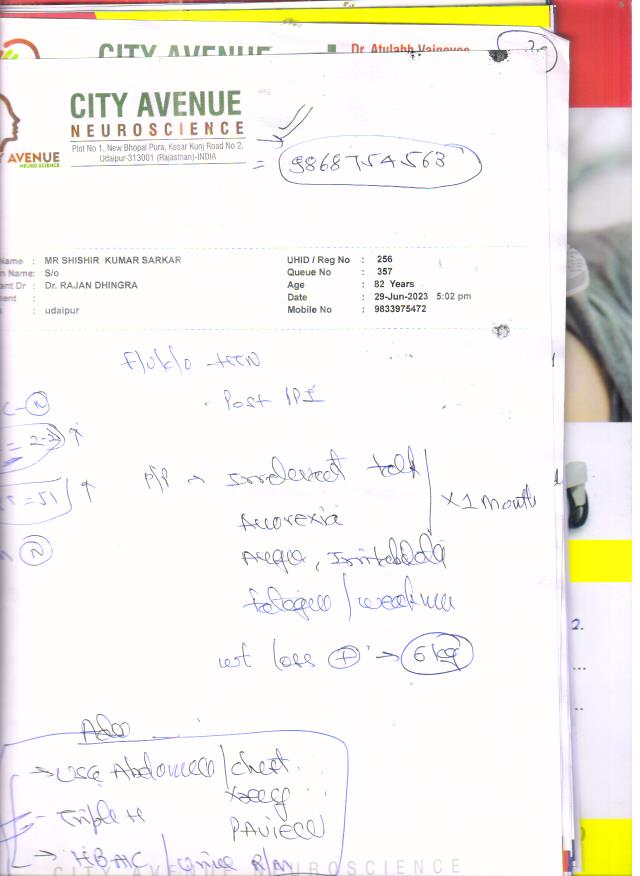 CITY AVENUE
Dr. Atulabh Vajpeyee
CITY AVENUE
NEUROSCIENCE
Plot No 1, New Bhopal Pura, Kesar Kunj Road No 2,
Udaipur-313001 (Rajasthan)-INDIA
AVENUE
NEURO SCIENCE
= 9868754563
ame : MR SHISHIR KUMAR SARKAR
UHID / Reg No : 256
n Name: S/o
Queue No : 357
ant Dr : Dr. RAJAN DHINGRA
Age : 82 Years
ment :
Date : 29-Jun-2023 5:02 pm
: udaipur
Mobile No : 9833975472
F/u/k/o - HTN
- Post IPI
C-N
= 2-2 ↑
= 51 ↑
N
P/P → Irrelevant talk
Anorexia
x 1 month
Anger, Irritability
fatigue / weakness
wt loss + → 6 kg
Adv
→ USG Abdomen / chest
xray
- Triple H
PA view
→ HBA1C / Urine R/M
CITY AVENUE NEUROSCIENCE
2.